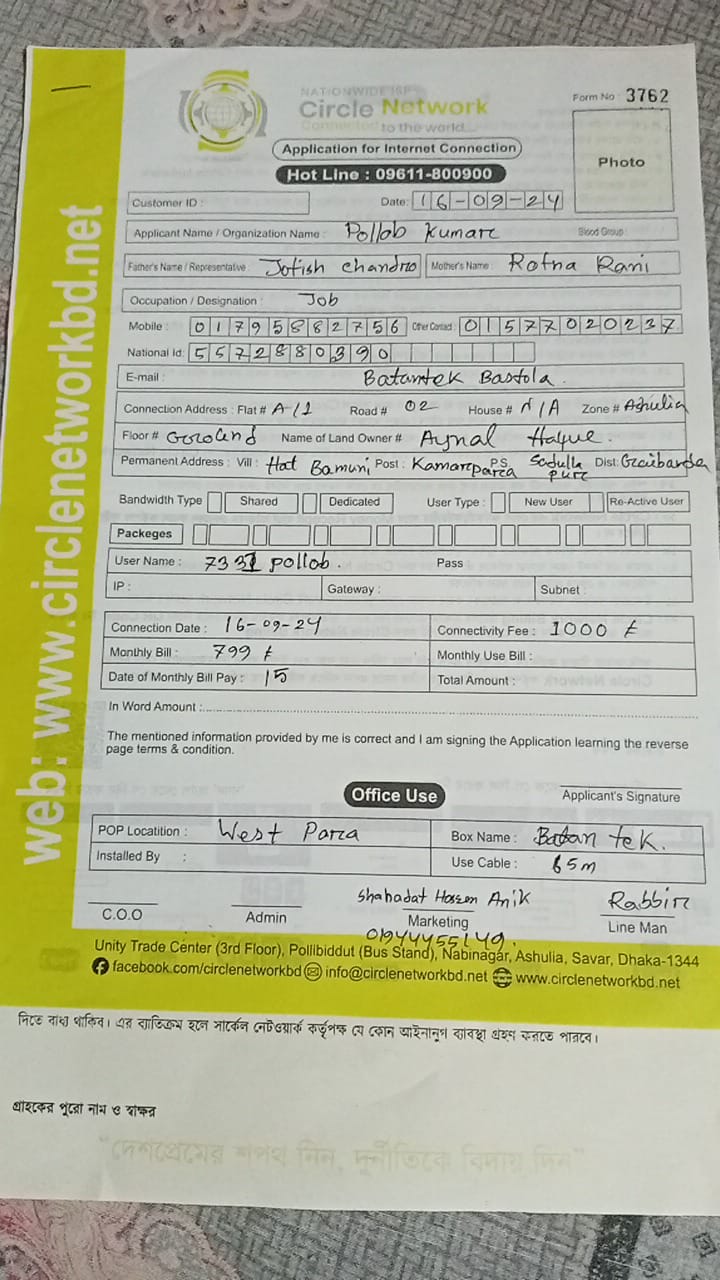 NATIONWIDE ISP
Circle Network
Connected to the world...
Form No : 3762
Application for Internet Connection
Hot Line : 09611-800900
Photo
Customer ID :
Date: 16-09-24
Applicant Name / Organization Name : Pollob Kumar Blood Group :
Father's Name / Representative : Jotish Chandro Mother's Name : Rotna Rani
Occupation / Designation : Job
Mobile : 01795882756 Other Contact : 01577020237
National Id: 5572880390
E-mail :
Batantek Bastola.
Connection Address : Flat # A/1 Road # 02 House # N/A Zone # Ashulia
Floor # Ground Name of Land Owner # Aynal Haque.
Permanent Address : Vill : Hat Bamuni Post : Kamarpara P.S Sadulla pur Dist: Gaibanda
Bandwidth Type Shared Dedicated User Type : New User Re-Active User
Packeges
User Name : 7331 pollob. Pass
IP : Gateway : Subnet
Connection Date : 16-09-24 Connectivity Fee : 1000 ৳
Monthly Bill : 799 ৳ Monthly Use Bill :
Date of Monthly Bill Pay : 15 Total Amount :
In Word Amount :
The mentioned information provided by me is correct and I am signing the Application learning the reverse
page terms & condition.
Office Use
Applicant's Signature
POP Locatition : West Para Box Name : Batan tek.
Installed By : Use Cable : 65m
Shahadat Hossen Anik Rabbir
C.O.O Admin Marketing Line Man
Unity Trade Center (3rd Floor), Pollibiddut (Bus Stand), Nabinagar, Ashulia, Savar, Dhaka-1344
facebook.com/circlenetworkbd info@circlenetworkbd.net www.circlenetworkbd.net
web: www.circlenetworkbd.net
দিতে বাধ্য থাকিব। এর ব্যতিক্রম হলে সার্কেল নেটওয়ার্ক কর্তৃপক্ষ যে কোন আইনানুগ ব্যবস্থা গ্রহণ করতে পারবে।
গ্রাহকের পুরো নাম ও স্বাক্ষর
"দেশপ্রেমের শপথ নিন, দুর্নীতিকে বিদায় দিন"